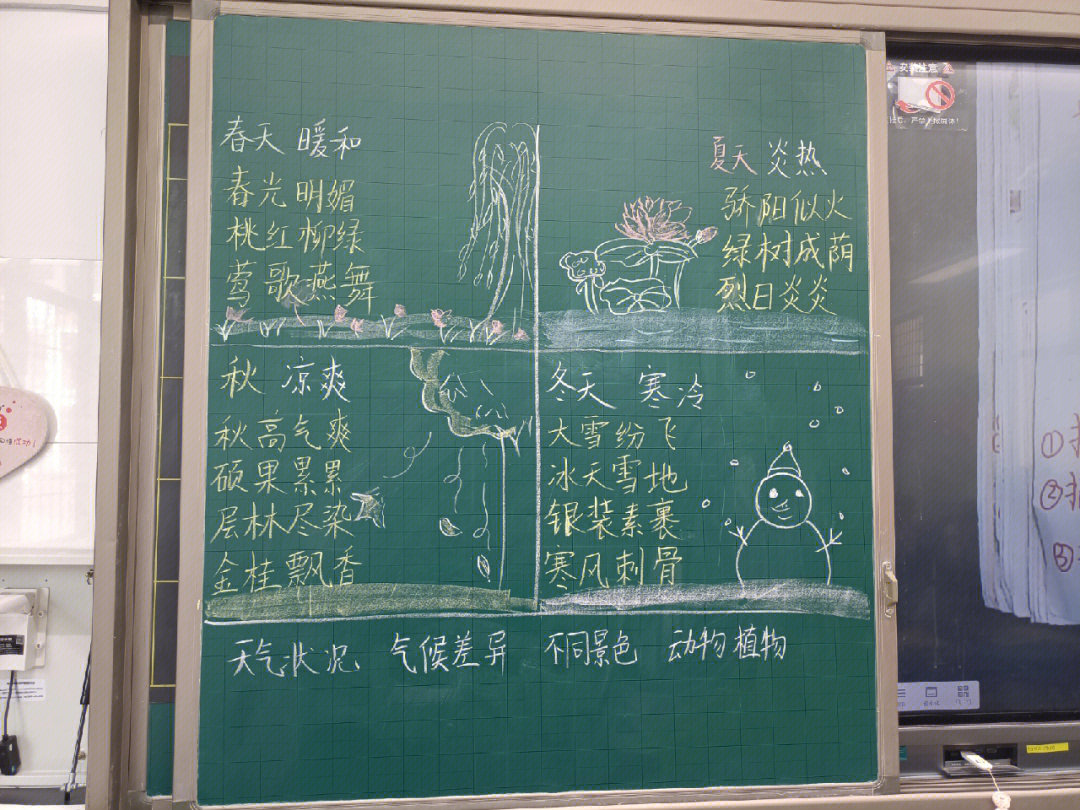 春天 暖和
春光明媚
桃红柳绿
莺歌燕舞
夏天 炎热
骄阳似火
绿树成荫
烈日炎炎
秋 凉爽
秋高气爽
硕果累累
层林尽染
金桂飘香
冬天 寒冷
大雪纷飞
冰天雪地
银装素裹
寒风刺骨
天气状况 气候差异 不同景色 动物植物
安装注意
①
②
③